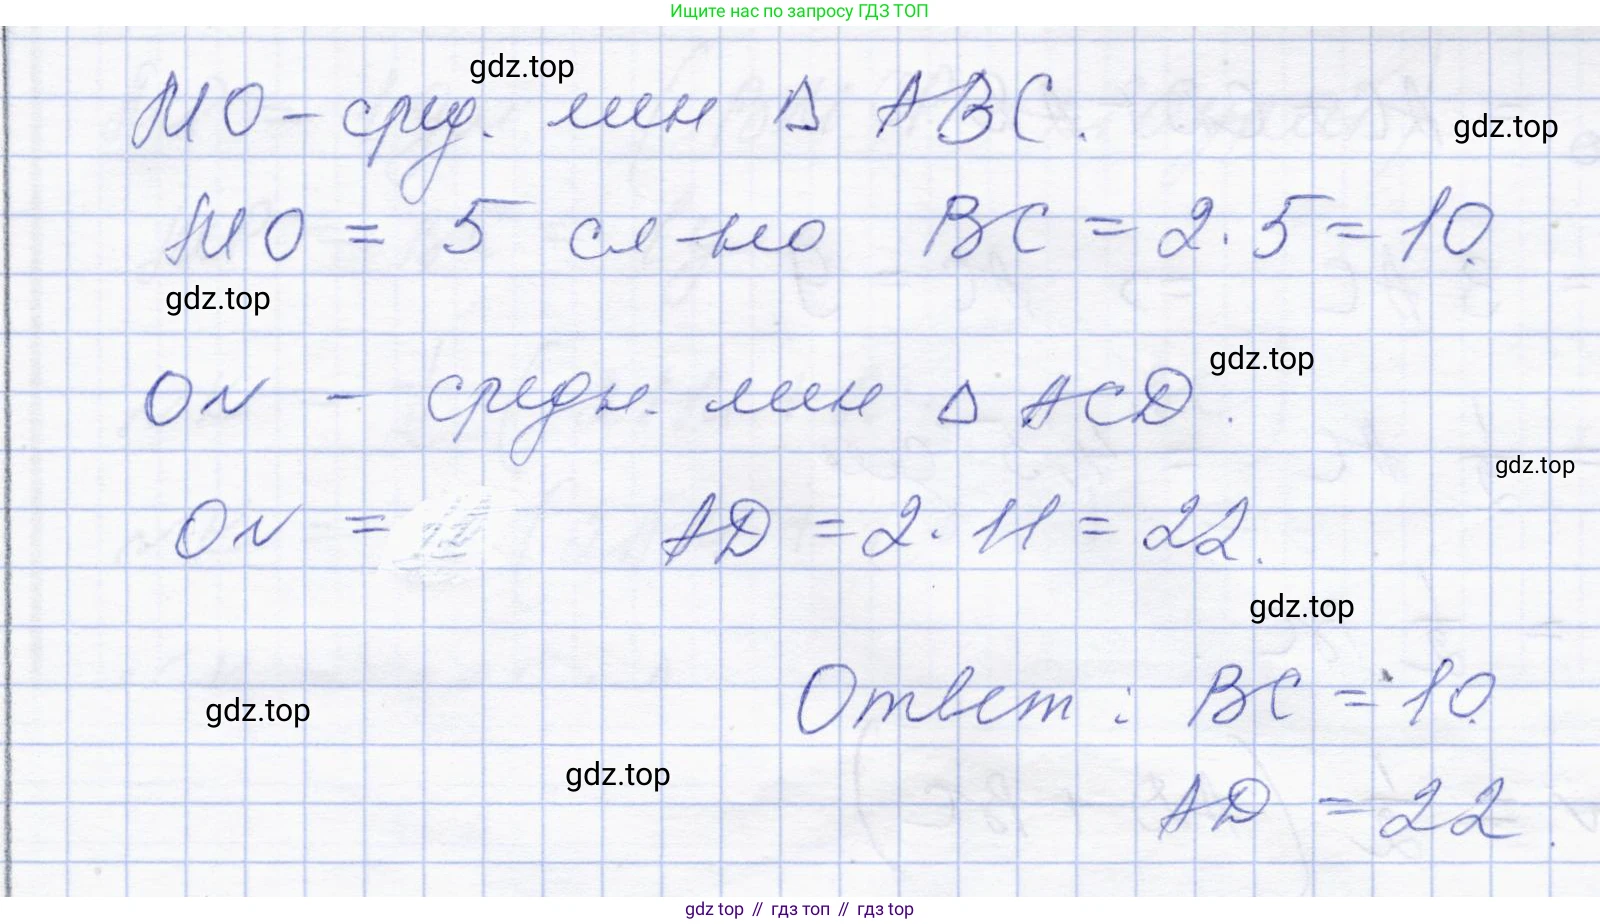 Ищите нас по запросу ГДЗ ТОП
gdz.top
МО – сред. лин Δ ABC.
gdz.top
МО = 5 сл-но BC = 2·5 = 10.
gdz.top
gdz.top
ON – средн. лин Δ ACD.
gdz.top
ON = AD = 2·11 = 22.
gdz.top
gdz.top
Ответ: BC = 10.
gdz.top
AD = 22.
gdz top // гдз топ // gdz top